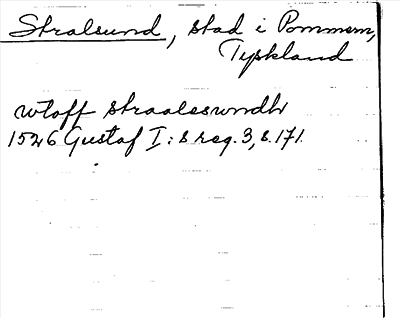 Stralsund, stad i Pommern,
Tyskland
wtoff straaleswndh
1526 Gustaf I:s reg. 3, s. 171.